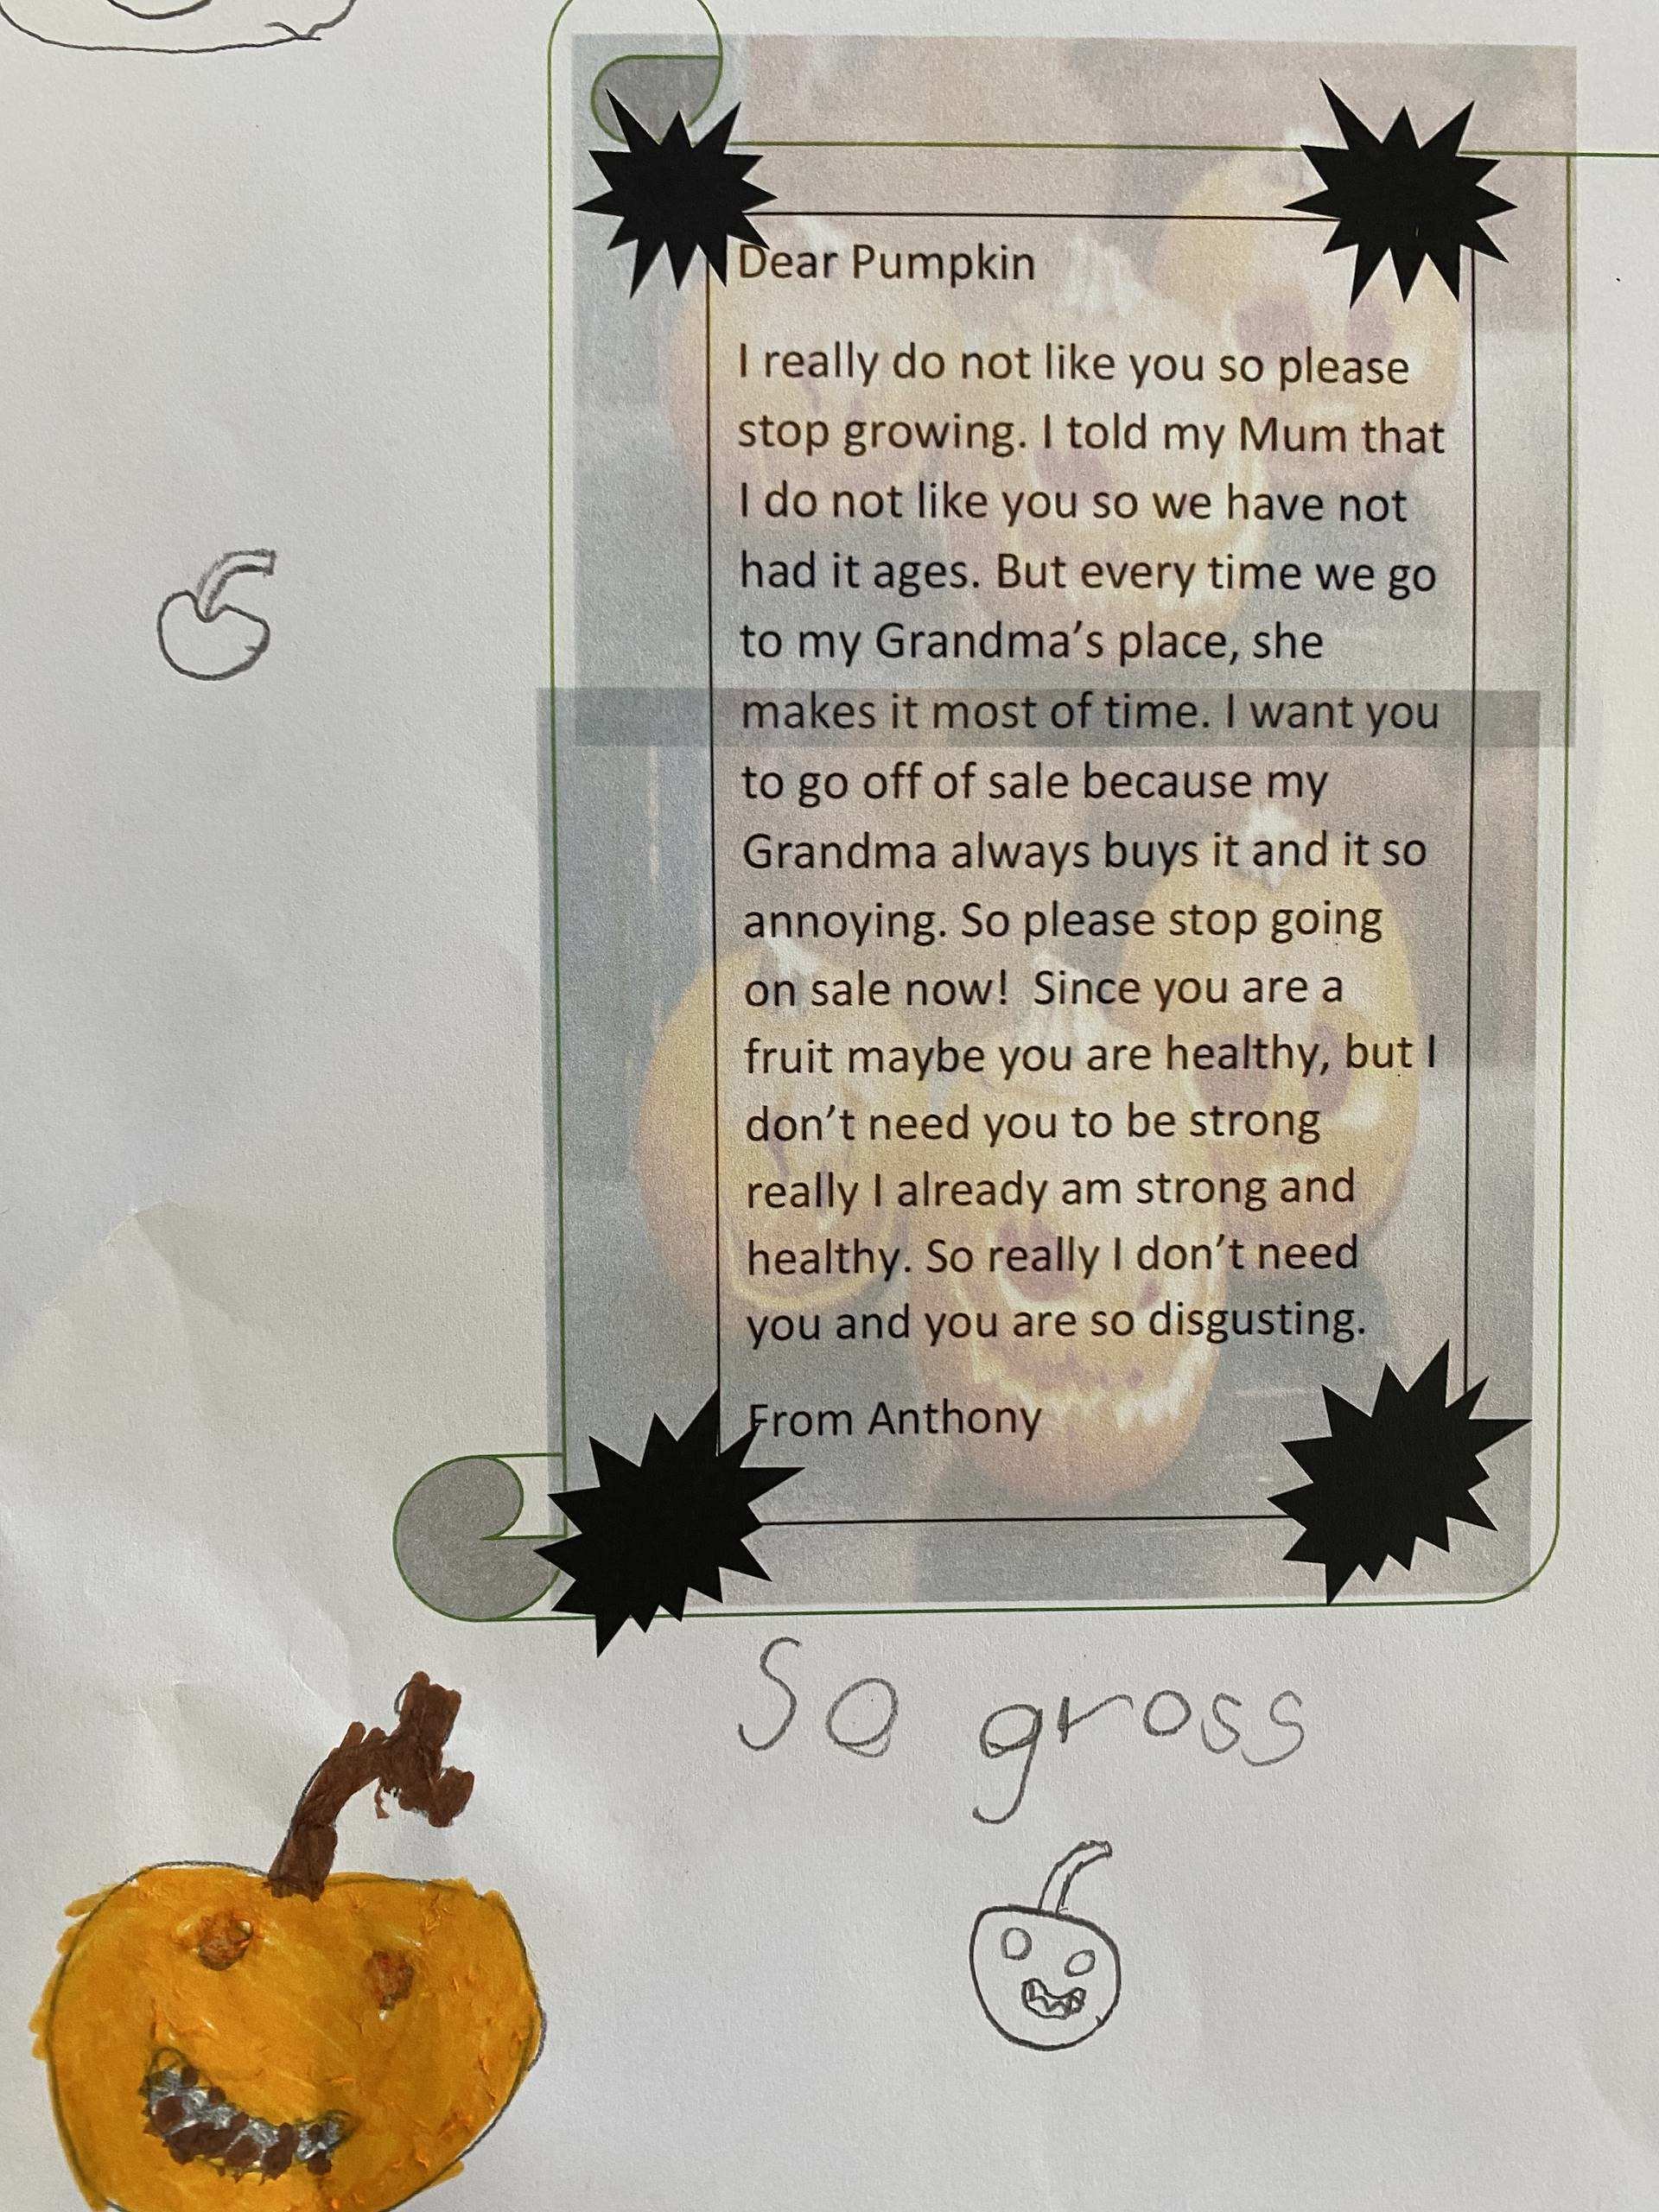 Dear Pumpkin
I really do not like you so please
stop growing. I told my Mum that
I do not like you so we have not
had it ages. But every time we go
to my Grandma’s place, she
makes it most of time. I want you
to go off of sale because my
Grandma always buys it and it so
annoying. So please stop going
on sale now!  Since you are a
fruit maybe you are healthy, but I
don’t need you to be strong
really I already am strong and
healthy. So really I don’t need
you and you are so disgusting.
From Anthony
So gross